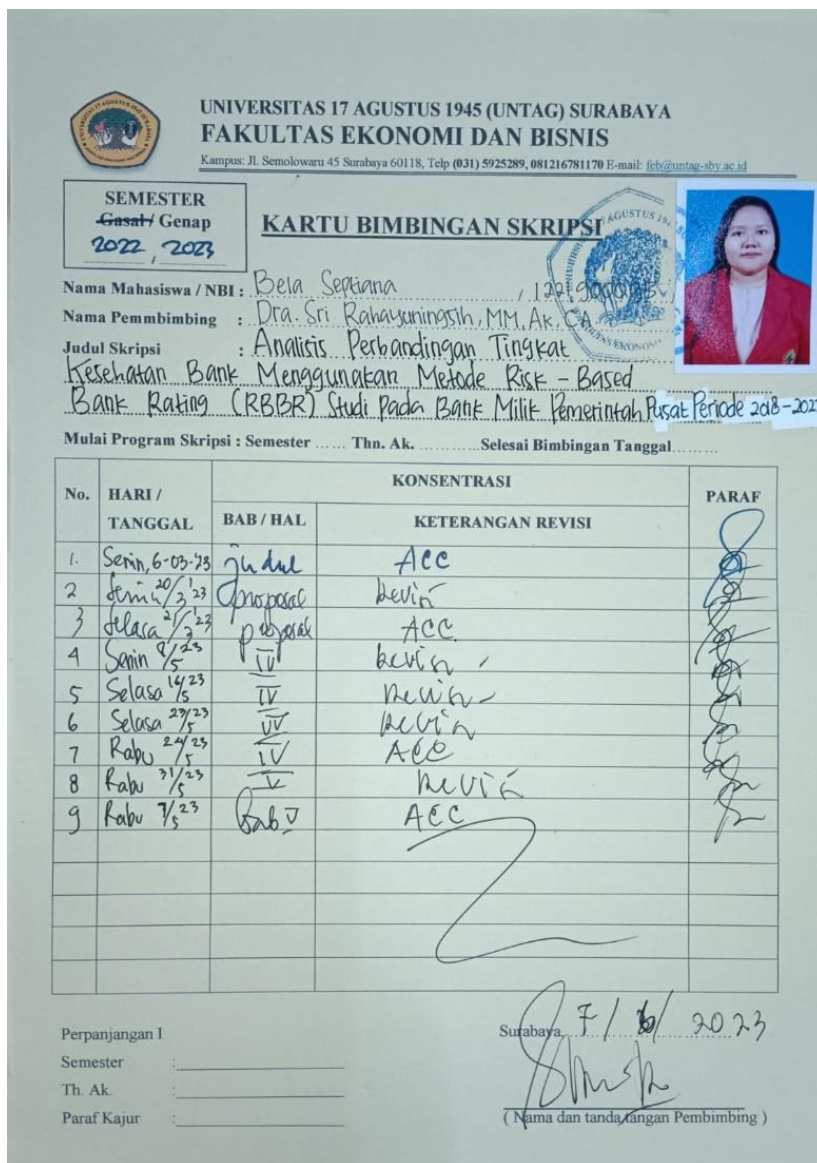 UNIVERSITAS 17 AGUSTUS 1945 (UNTAG) SURABAYA
FAKULTAS EKONOMI DAN BISNIS
Kampus: Jl. Semolowaru 45 Surabaya 60118, Telp (031) 5925289, 081216781170 E-mail: feb@untag-sby.ac.id
SEMESTER
Gasal/ Genap
2022 , 2023
KARTU BIMBINGAN SKRIPSI
Nama Mahasiswa / NBI : Bela Septiana /
Nama Pemmbimbing : Dra. Sri Rahayuningsih, MM, Ak, CA
Judul Skripsi : Analisis Perbandingan Tingkat
Kesehatan Bank Menggunakan Metode Risk - Based
Bank Rating (RBBR) Studi Pada Bank Milik Pemerintah Pusat Periode 2018-202
Mulai Program Skripsi : Semester ...... Thn. Ak. ............ Selesai Bimbingan Tanggal ........
No. HARI / TANGGAL KONSENTRASI PARAF
BAB / HAL KETERANGAN REVISI
1. Senin, 6-03-'23 judul ACC
2 Senin 20/3 '23 proposal Revisi
3 Selasa 21/3 '23 proposal ACC
4 Senin 8/5 23 IV Revisi
5 Selasa 16/5 23 IV Revisi
6 Selasa 23/5 23 IV Revisi
7 Rabu 24/5 23 IV ACC
8 Rabu 31/5 23 V Revisi
9 Rabu 7/5 23 Bab V ACC
Perpanjangan I
Semester :
Th. Ak. :
Paraf Kajur :
Surabaya, 7/6/2023
( Nama dan tanda tangan Pembimbing )